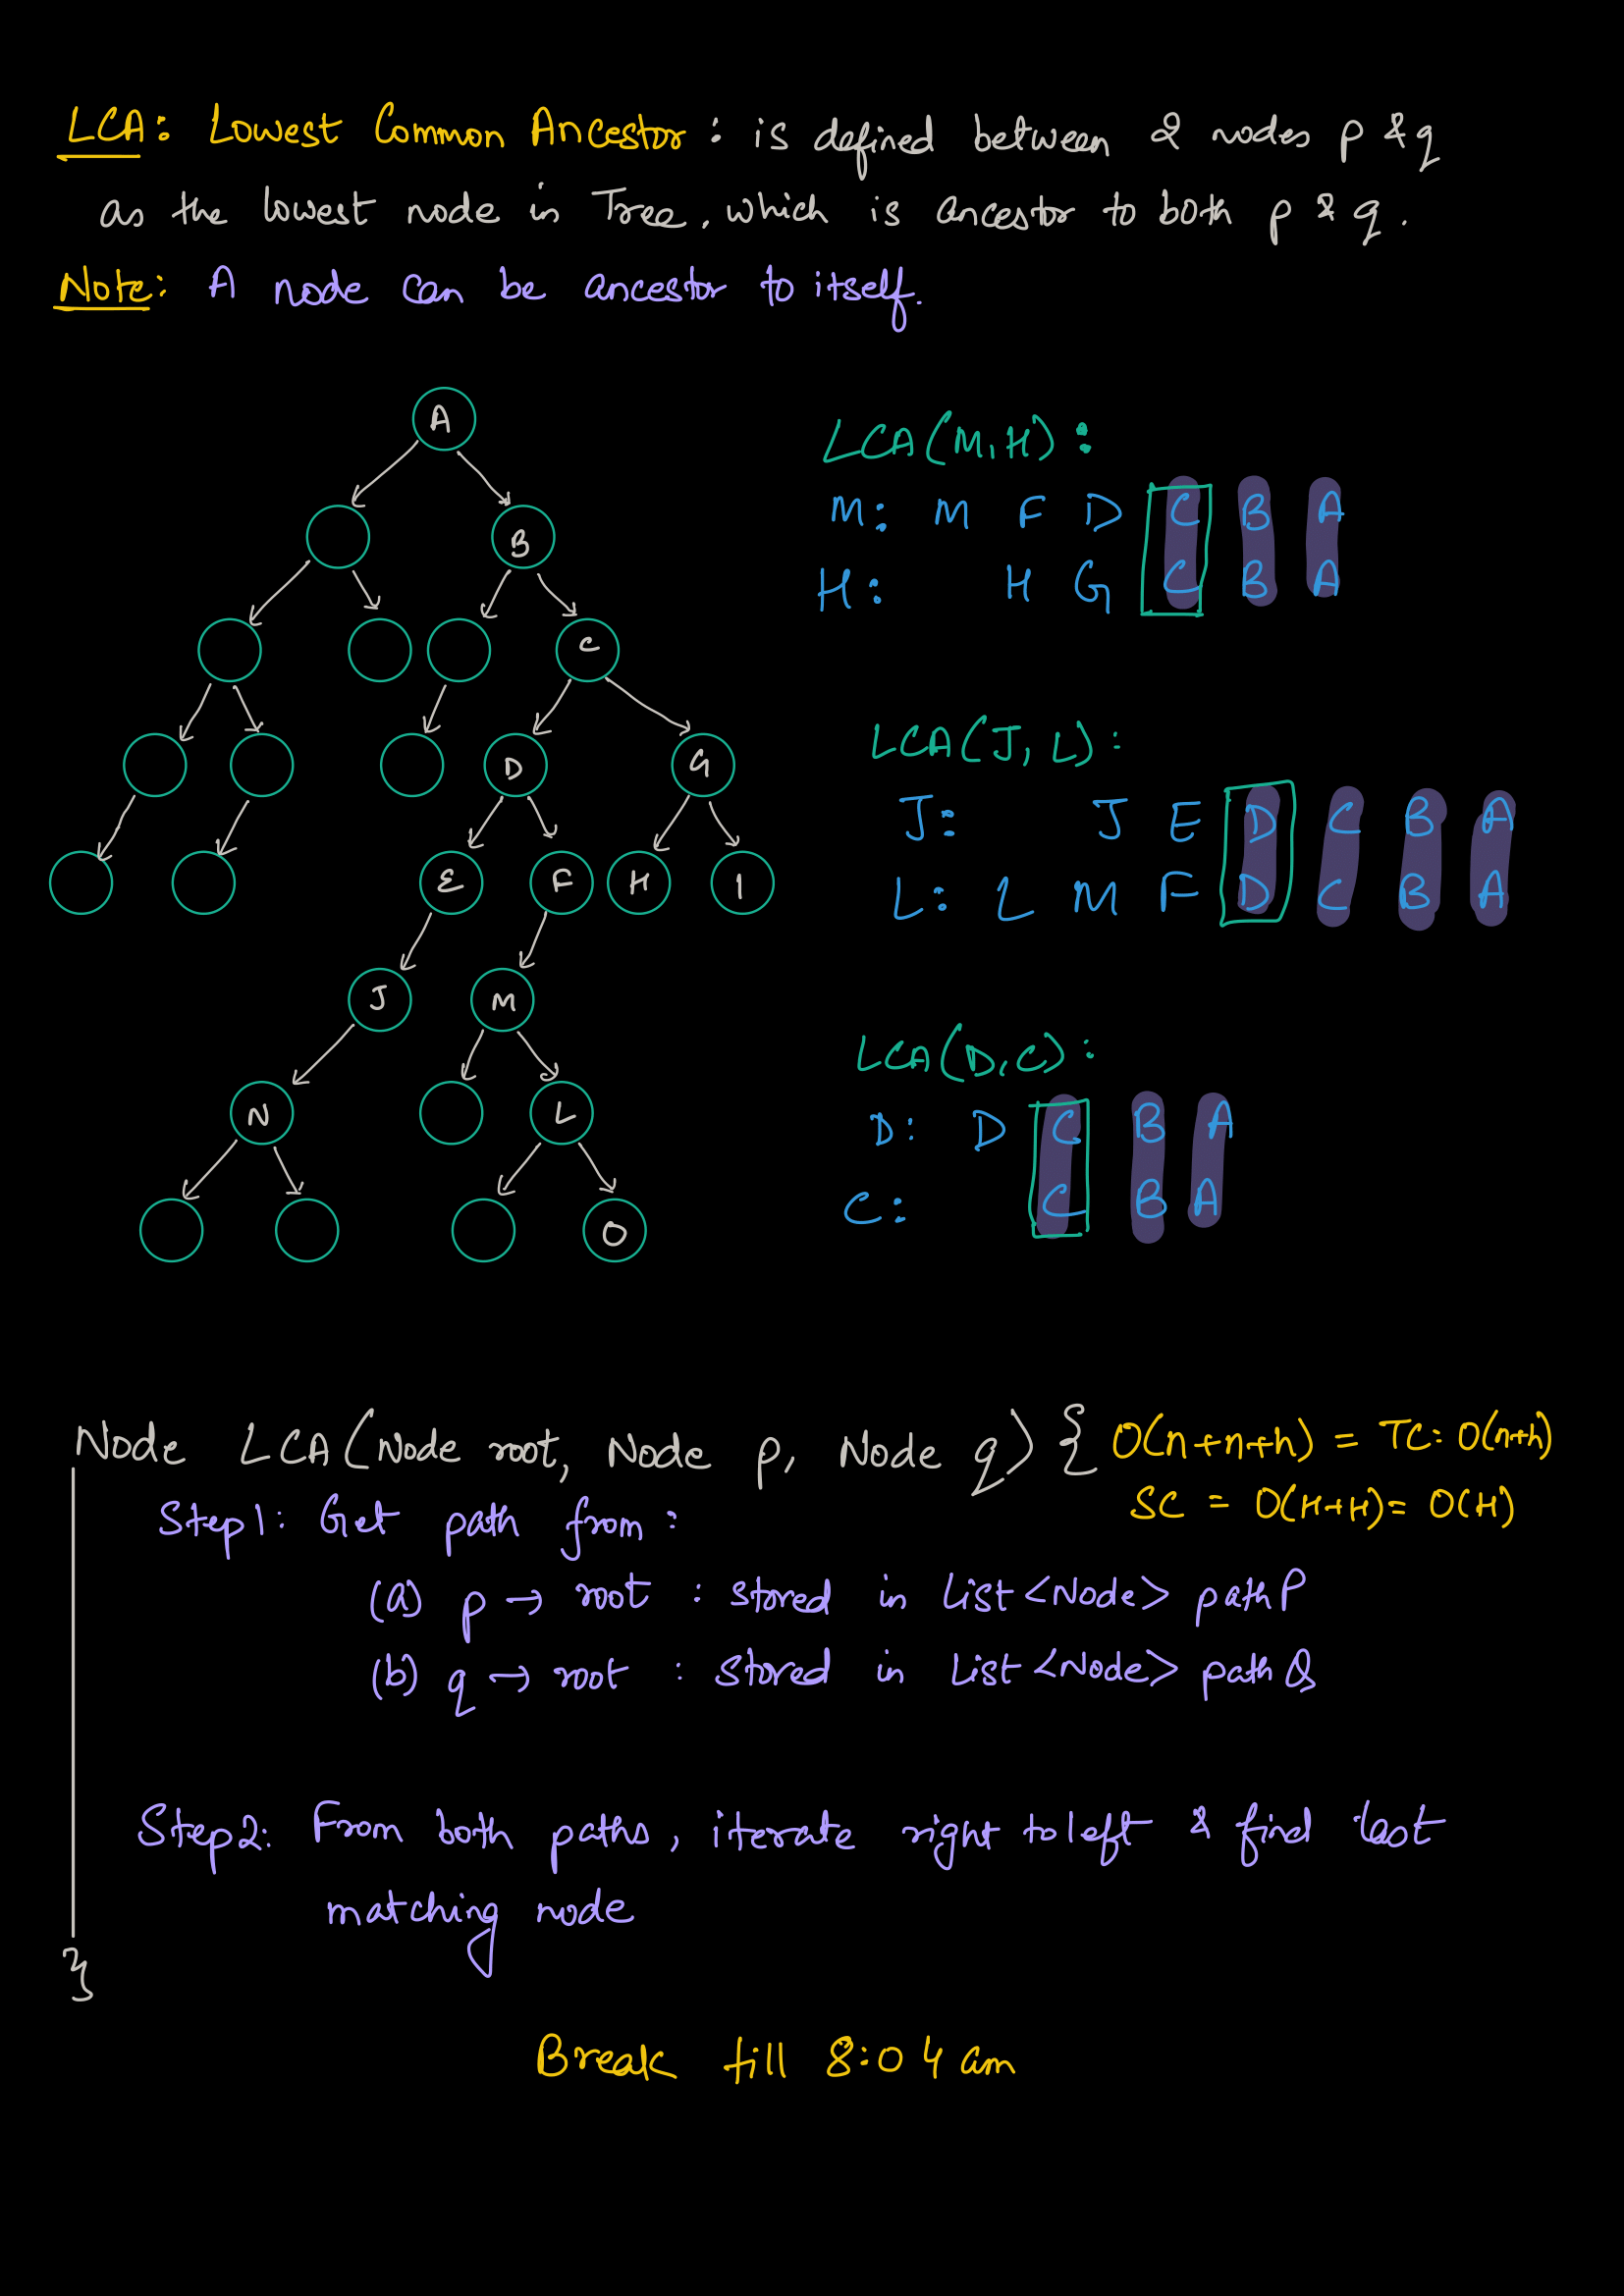 LCA: Lowest Common Ancestor : is defined between 2 nodes p & q
as the lowest node in Tree, which is ancestor to both p & q.
Note: A node can be ancestor to itself.
A
B
C
D
G
E
F
H
I
J
M
N
L
O
LCA(M,H) :
M: M F D C B A
H: H G C B A
LCA(J, L) :
J: J E D C B A
L: L M F D C B A
LCA(D,C) :
D: D C B A
C: C B A
Node LCA(Node root, Node p, Node q) { O(n+n+h) = TC: O(n+h)
SC = O(H+H) = O(H)
Step1: Get path from :
(a) p → root : stored in List<Node> pathP
(b) q → root : stored in List<Node> pathQ
Step2: From both paths, iterate right to left & find last
matching node
}
Break till 8:04 am